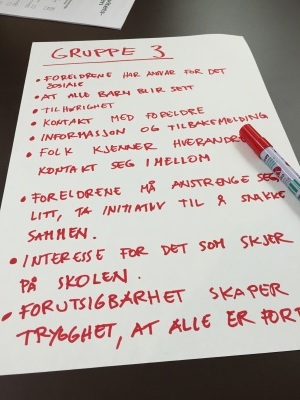 GRUPPE 3
• FORELDRENE HAR ANSVAR FOR DET
SOSIALE
• AT ALLE BARN BLIR SETT
• TILHØRIGHET
• KONTAKT MED FORELDRE
• INFORMASJON OG TILBAKEMELDING
• FOLK KJENNER HVERANDRE
KONTAKT SEG IMELLOM
• FORELDRENE MÅ ANSTRENGE SEG
LITT, TA INITIATIV TIL Å SNAKKE
SAMMEN.
• INTERESSE FOR DET SOM SKJER
PÅ SKOLEN.
• FORUTSIGBARHET SKAPER
TRYGGHET, AT ALLE ER